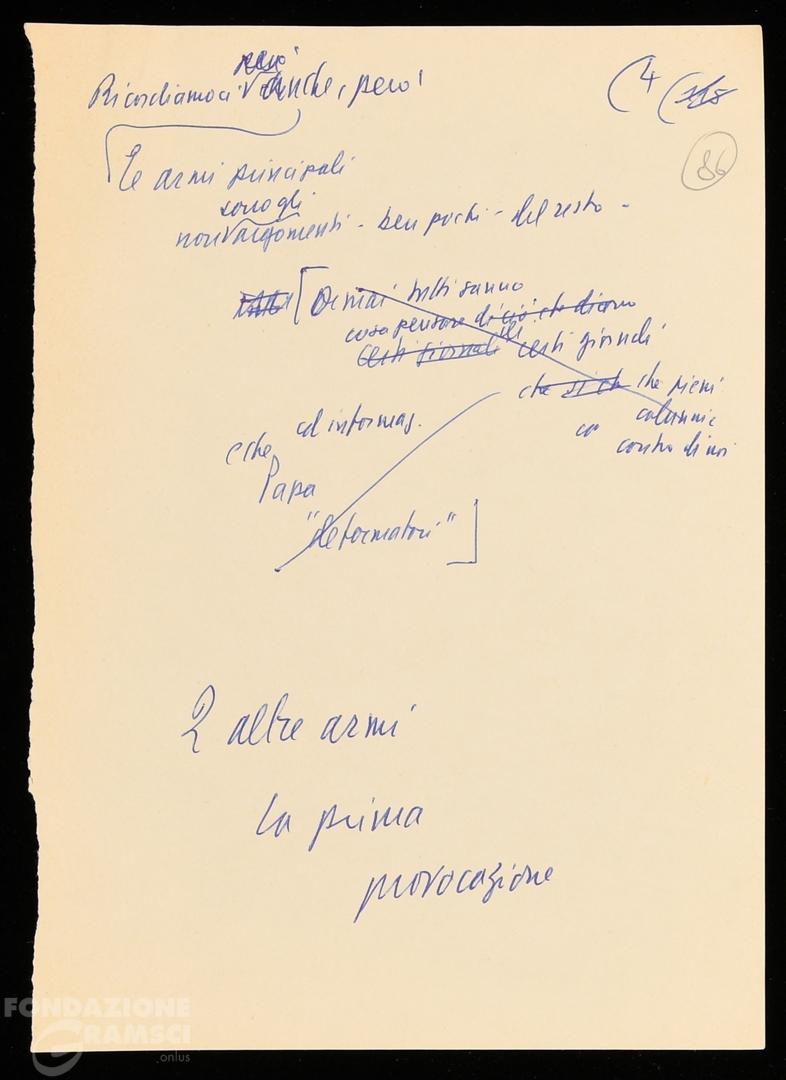 però
Ricordiamoci anche, però
(4
86
le armi principali
sono gli
non argomenti - ben pochi - del resto -
[Ormai tutti sanno
cosa pensare di ciò che dicono
certi giornali di certi giornali
che si ch che pieni
ed informaz. co calunnie
e che contro di noi
Papa
"deformatori"]
2 altre armi
la prima
provocazione
FONDAZIONE
GRAMSCI
onlus